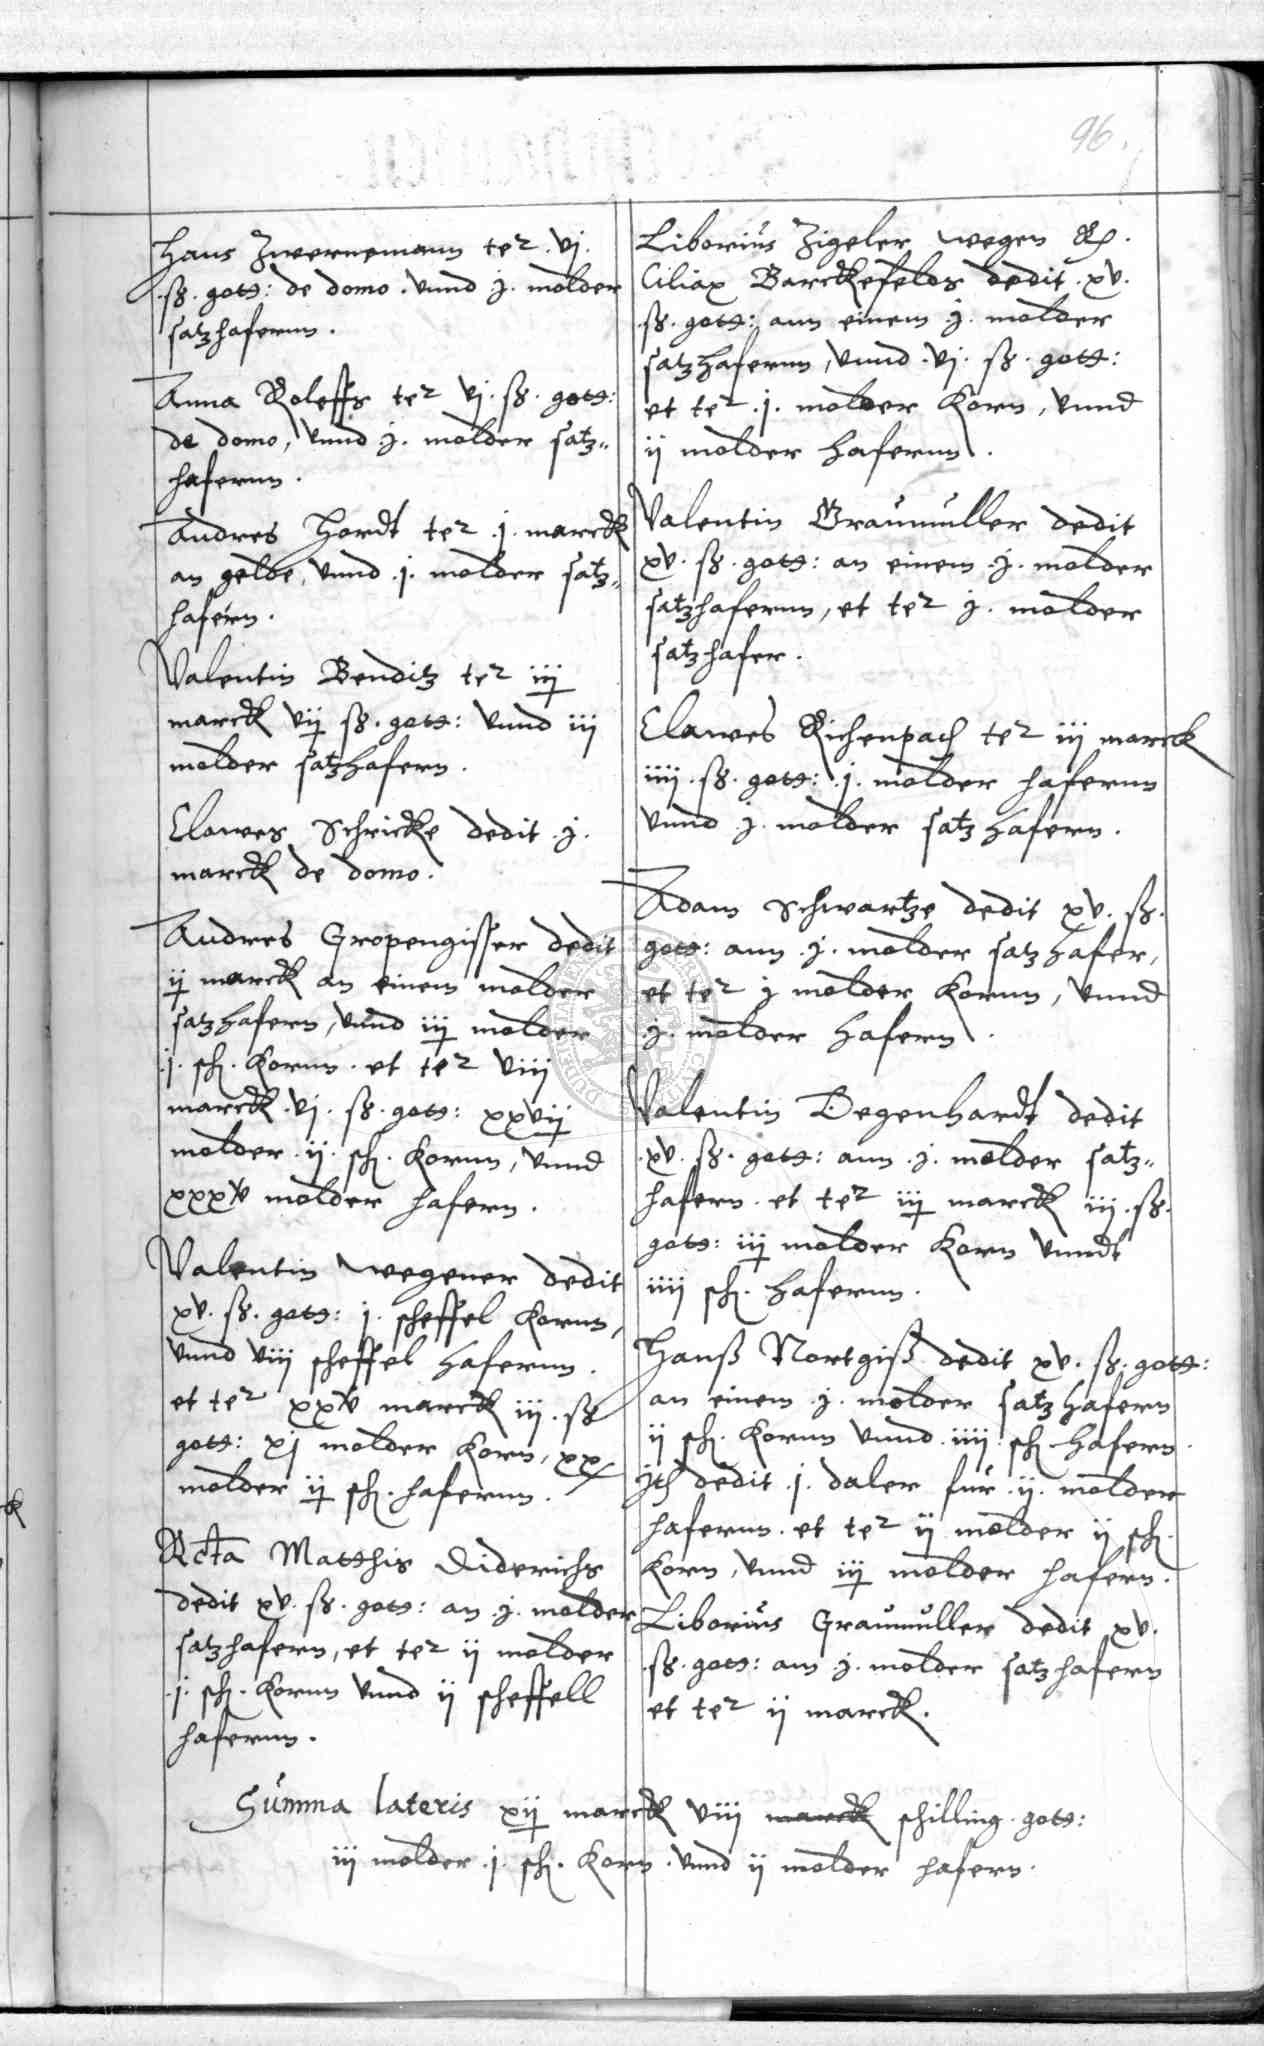 96.
Hans Zwernemann ter vj.
ß. gots: de domo. vnnd j. molder
satzhafernn.
Anna Roleffs ter vj. ß. gots:
de domo, vnnd j. molder satz„
hafernn.
Andres Hardt ter j. marck
an gelde, vnnd j. molder satz„
hafern.
Valentin Benditz ter iij
marck vij ß. gots: vnnd iij
molder satzhafern.
Clawes Schricke dedit j.
marck de domo.
Andres Gropengisser dedit
ij marck an einem molder
satzhafern, vnnd iij molder
j. sch. Kornn. et ter viij
marck vj. ß. gots: xxvij
molder ij. sch. Kornn, vnnd
xxxv molder hafern.
Valentin Wegener dedit
xv. ß. gots: j. scheffel Kornn,
vnnd viij scheffel hafernn.
et ter xxv marck iij. ß
gots: xj molder Korn, xx
molder ij sch. hafernn.
Rcta Matthis Diderichs
dedit xv. ß. gots: an j. molder
satzhafern, et ter ij molder
j. sch. Kornn vnnd ij scheffell
hafernn.
Liborius Zigeler wegen
Ciliax Barckefelds dedit xv.
ß. gots: ann einem j. molder
satzhafernn, vnnd vj. ß. gots:
et ter j. molder Korn, vnnd
ij molder hafernn.
Valentin Graumuller dedit
xv. ß. gots: an einem j. molder
satzhafernn, et ter j. molder
satzhafer.
Clawes Richenpach ter iij marck
iiij. ß. gots: j. molder hafernn
vnnd j. molder satzhafern.
Adam Schwartze dedit xv. ß.
gots: ann j. molder satzhafer,
et ter j molder Kornn, vnnd
j. molder hafern.
Valentin Degenhardt dedit
xv. ß. gots: ann j. molder satz„
hafern. et ter iij marck iij. ß.
gots: iij molder Korn vnndt
iiij sch. hafernn.
Hanß Nortgiß dedit xv. ß. gots:
an einem j. molder satzhafern
ij sch. Kornn vnnd iiij sch. hafern.
dedit j. daler fur ij. molder
hafernn. et ter ij molder ij sch.
Korn, vnnd iij molder hafern.
Liborius Graumuller dedit xv.
ß. gots: ann j. molder satzhafern
et ter ij marck.
Summa lateris xij marck viij marck schilling gots:
iij molder j. sch. Korn. vnnd ij molder hafern.